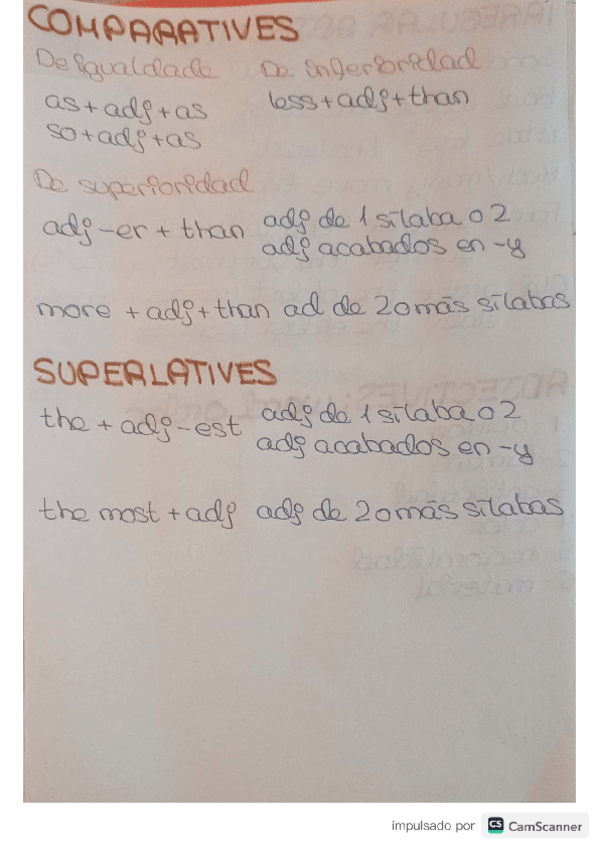 COMPARATIVES
De igualdade De inferioridad
as+adj+as less+adj+than
so+adj+as
De superioridad
adj-er + than adj de 1 sílaba o 2
adj acabados en -y
more + adj+than ad de 2 o más sílabas
SUPERLATIVES
the + adj-est adj de 1 sílaba o 2
adj acabados en -y
the most + adj adj de 2 o más sílabas
impulsado por CS CamScanner